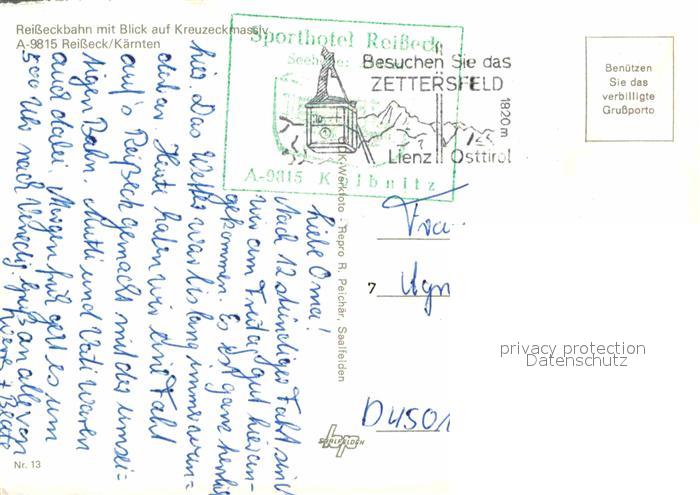 Reißeckbahn mit Blick auf Kreuzeckmassiv
A-9815 Reißeck/Kärnten
Sporthotel Reißeck
A-9815 Kolbnitz
Besuchen Sie das
ZETTERSFELD
1820m
Lienz Osttirol
Benützen
Sie das
verbilligte
Grußporto
Werkfoto - Repro R. Peichär, Saalfelden
Liebe Oma!
Nach 12 stündiger Fahrt sind
wir am Freitag gut hier an-
gekommen. Es ist ganz herrlich
hier. Das Wetter war bislang immer wun-
derbar. Heute haben wir eine Fahrt
auf's Reißeck gemacht mit der
Bahn. Mutti und Vati waren
auch dabei. Morgen früh geht es um
500 Uhr nach Venedig. Gruß an alle von
+ Beate
Fra
7
D4501
SAALFELDEN
Nr. 13
privacy protection
Datenschutz